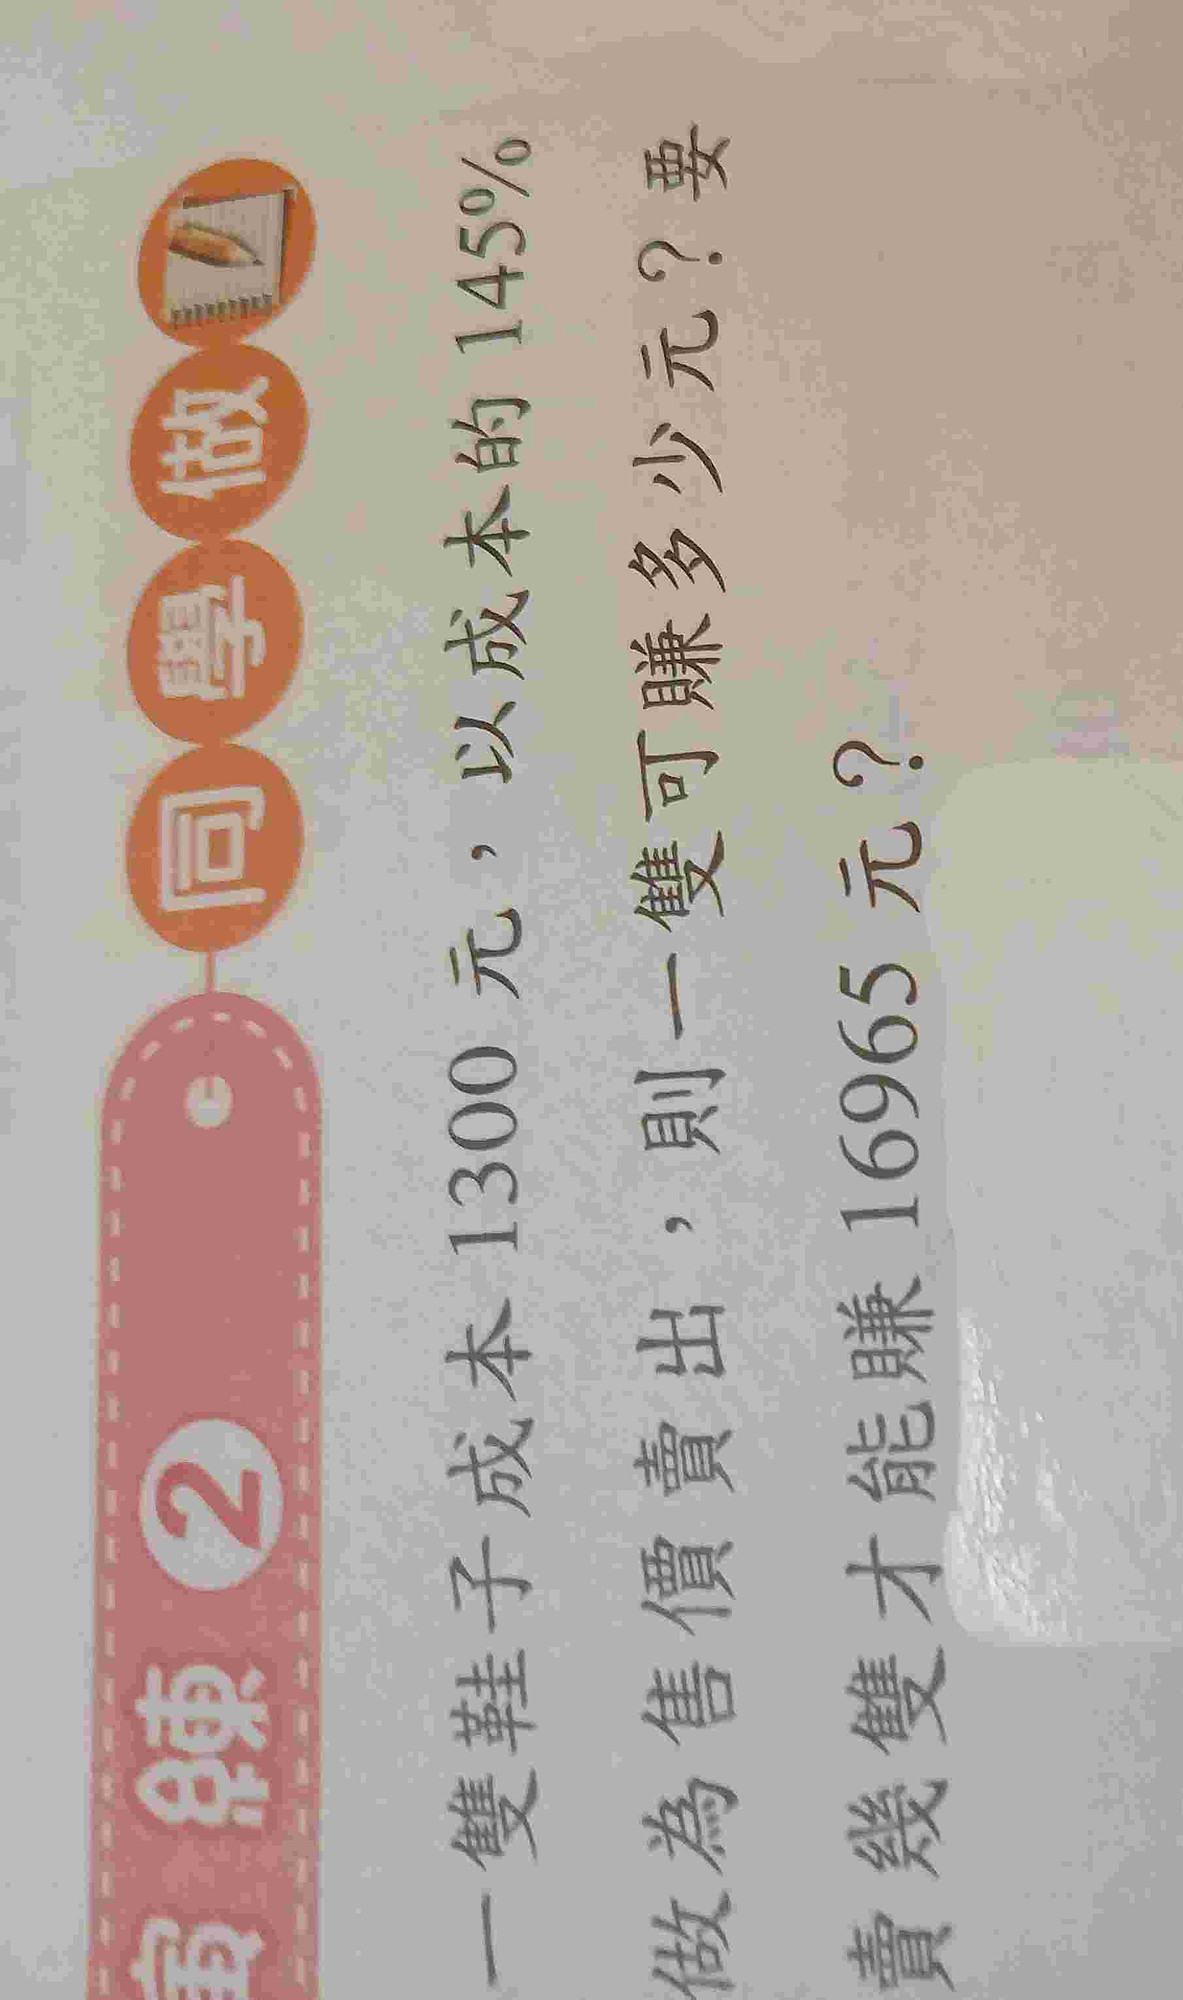 練 2 同學做
一雙鞋子成本 1300 元，以成本的 145%
做為售價賣出，則一雙可賺多少元？要
賣幾雙才能賺 16965 元？